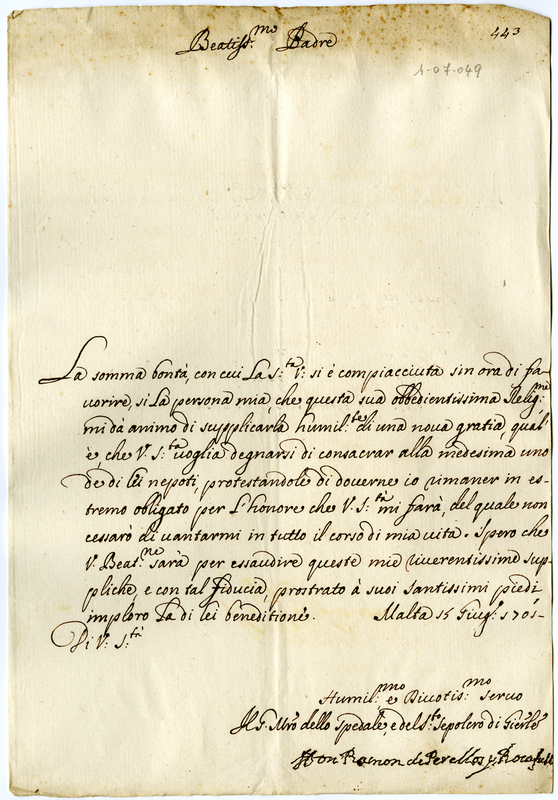 443
Beatiss.mo Padre
A-07-049
La somma bontà, con cui La S.tà V. si è compiacciuta sin ora di fa-
vorire, si La persona mia, che questa sua obbedientissima Relig.ne
mi dà animo di supplicarla humil.te di una nova gratia, qual'
è, che V. S.tà voglia degnarsi di consacrar alla medesima uno
de di lei nepoti, protestandole di doverne io rimaner in es-
tremo obligato per L'honore che V. S.tà mi farà, del quale non
cessarò di vantarmi in tutto il corso di mia vita. Spero che
V. Beat.ne sarà per essaudire queste mie riverentissime sup-
pliche, e con tal fiducia, prostrato à suoi santissimi piedi
imploro La di lei beneditione. Malta 15 Giug. 1701-
Di V. S.tà
Humil.mo e Divotis.mo servo
Il G. Mro dello Spedale, e del S.to Sepolcro di Gierlè
Don Ramon de Perellos y Rocafull